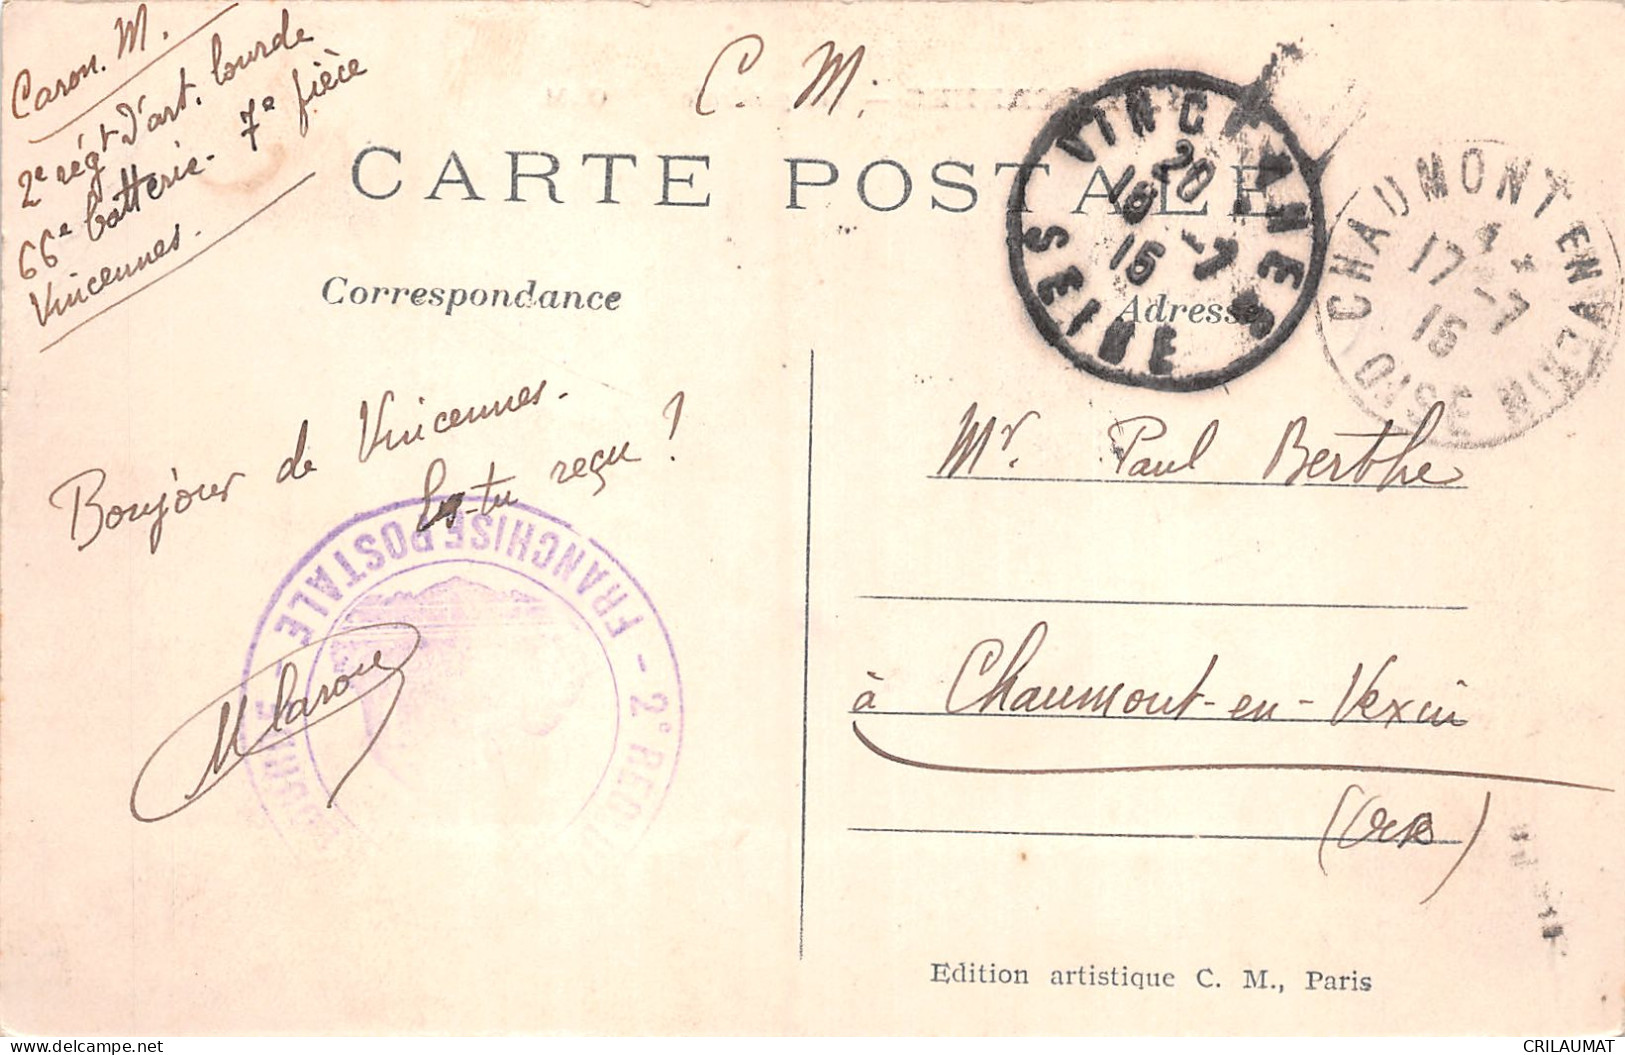 Caron. M.
2e régt d'art. lourde
66e batterie - 7e pièce
Vincennes.
C. M.
CARTE POSTALE
Correspondance
Adresse
VINCENNES
SEINE
20
16 -7
15
CHAUMONT EN VEXIN
OISE
17 -7
15
Bonjour de Vincennes.
Es-tu reçu ?
FRANCHISE POSTALE
- 2e REG
M Caron
Mr. Paul Berthe
à Chaumont-en-Vexin
(Oise)
Edition artistique C. M., Paris
CRILAUMAT